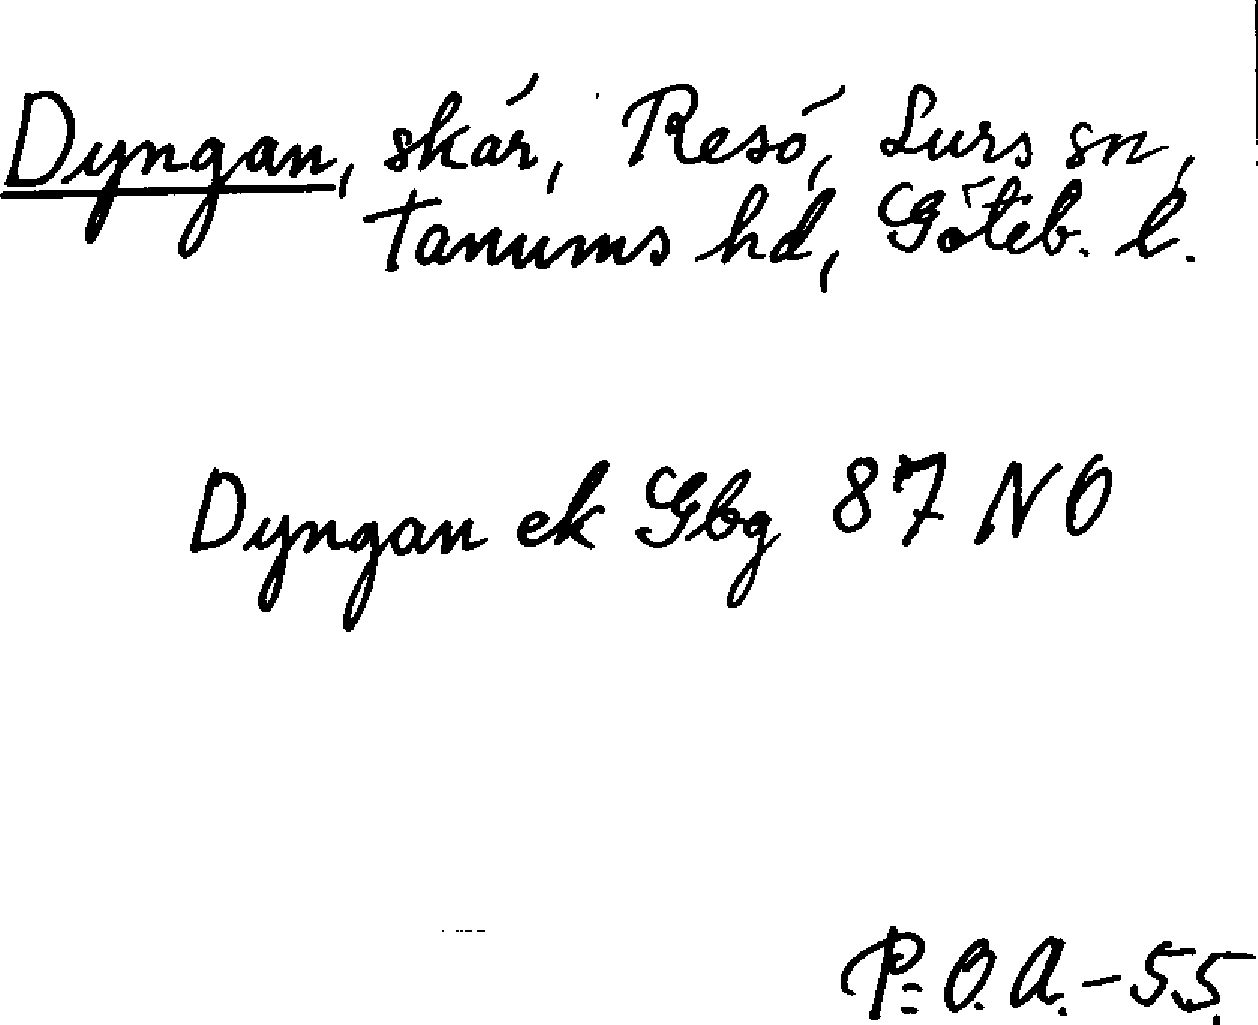 Dyngan, skär, Resö, Lurs sn,
Tanums hd, Göteb. l.
Dyngan ek Gbg 87 NO
P.O.A.-55.